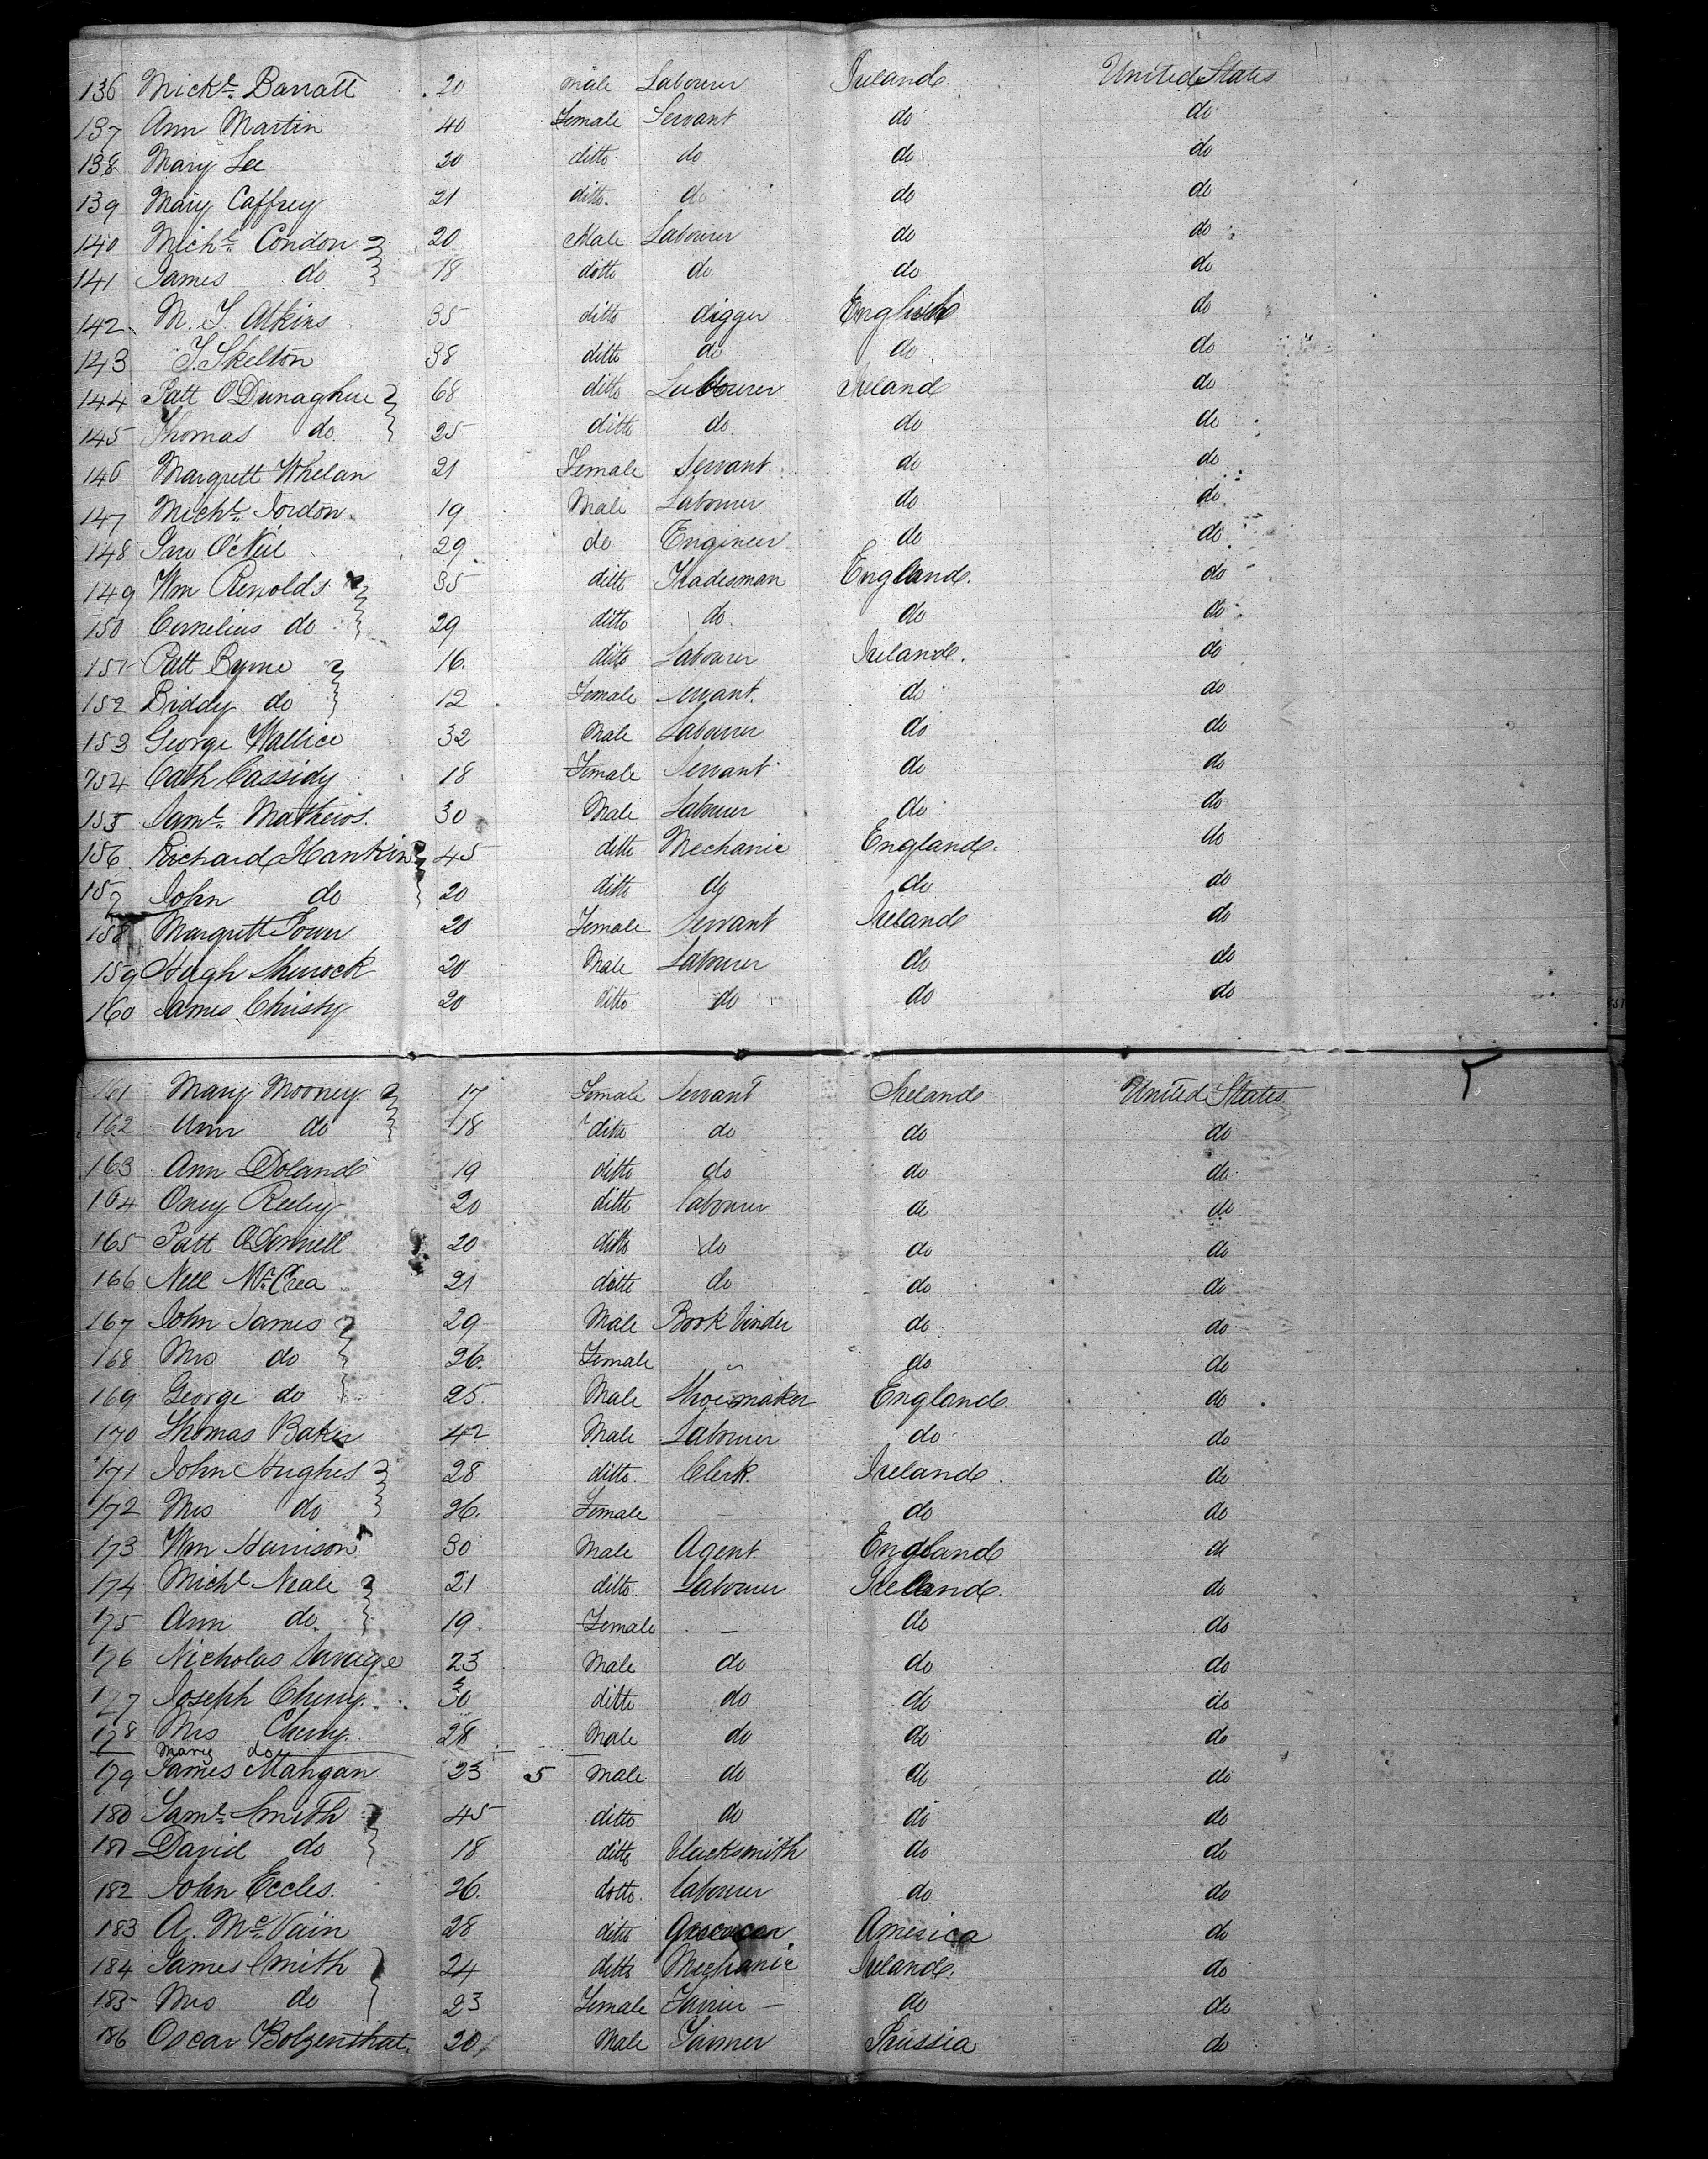 136 Mickl. Barratt 20 male Labourer Ireland. United States
137 Ann Martin 40 Female Servant do do
138 Mary Lee 20 ditto do do do
139 Mary Caffrey 21 ditto. do do do
140 Michl. Condon 20 Male Labourer do do
141 James do 18 ditto do do do
142 M. J. Atkins 35 ditto digger English do
143 J. Skelton 38 ditto do do do
144 Patt ODunaghue 68 ditto Labourer Ireland do
145 Thomas do 25 ditto do. do do
146 Margrett Whelan 21 Female Servant do do
147 Michl. Jordon 19 Male Labourer do do
148 O'Neil 29 do Engineer do do
149 Wm Renolds 35 ditto Tradesman England. do
150 Cornelius do 29 ditto do. do do
151 Patt Byrne 16. ditto Labourer Ireland. do
152 Biddy do 12 Female Servant. do do
153 George Wallice 32 Male Labourer do do
154 Cath Cassidy 18 Female Servant do do
155 Saml. Mathews. 30 Male Labourer do do
156 Richard Hankin 45 ditto Mechanic England. do
157 John do 20 ditto do do do
158 Margrett Power 20 Female Servant Ireland do
159 Hugh 20 Male Labourer do do
160 James Christy 20 ditto do do do
161 Mary Mooney 17 Female Servant Ireland United States
162 Ann do 18 ditto do do do
163 Ann Doland 19 ditto do do do
164 Reeley 20 ditto labourer do do
165 Patt ODonnell 20 ditto do do do
166 Nell McCrea 21 ditto do do do
167 John James 29 Male Book binder do do
168 Mrs do 26. Female do do
169 George do 25. Male Shoemaker England do
170 Thomas Baker 42 Male Labourer do do
171 John Hughes 28 ditto. Clerk. Ireland. do
172 Mrs do 26. Female — do do
173 Wm Harrison 30 Male Agent England do
174 Michl Neale 21 ditto Labourer Ireland. do
175 Ann do. 19. Female — do do
176 Nicholas Savage 23 Male do do do
177 Joseph Cherry 30 ditto do do do
178 Mrs Cherry. 28 Male do do do
Mary do
179 James Mangan 23 5 Male do do do
180 Saml. Smith 45 ditto do do do
181 David do 18 ditto blacksmith do do
182 John Eccles. 26. dotto. labourer do do
183 A. Mc.Vain 28 ditto America do
184 James Smith 24 ditto Mechanic Ireland. do
185 Mrs do 23 Female — do do
186 Oscar Bolzenthat. 20 Male Farmer Prussia do